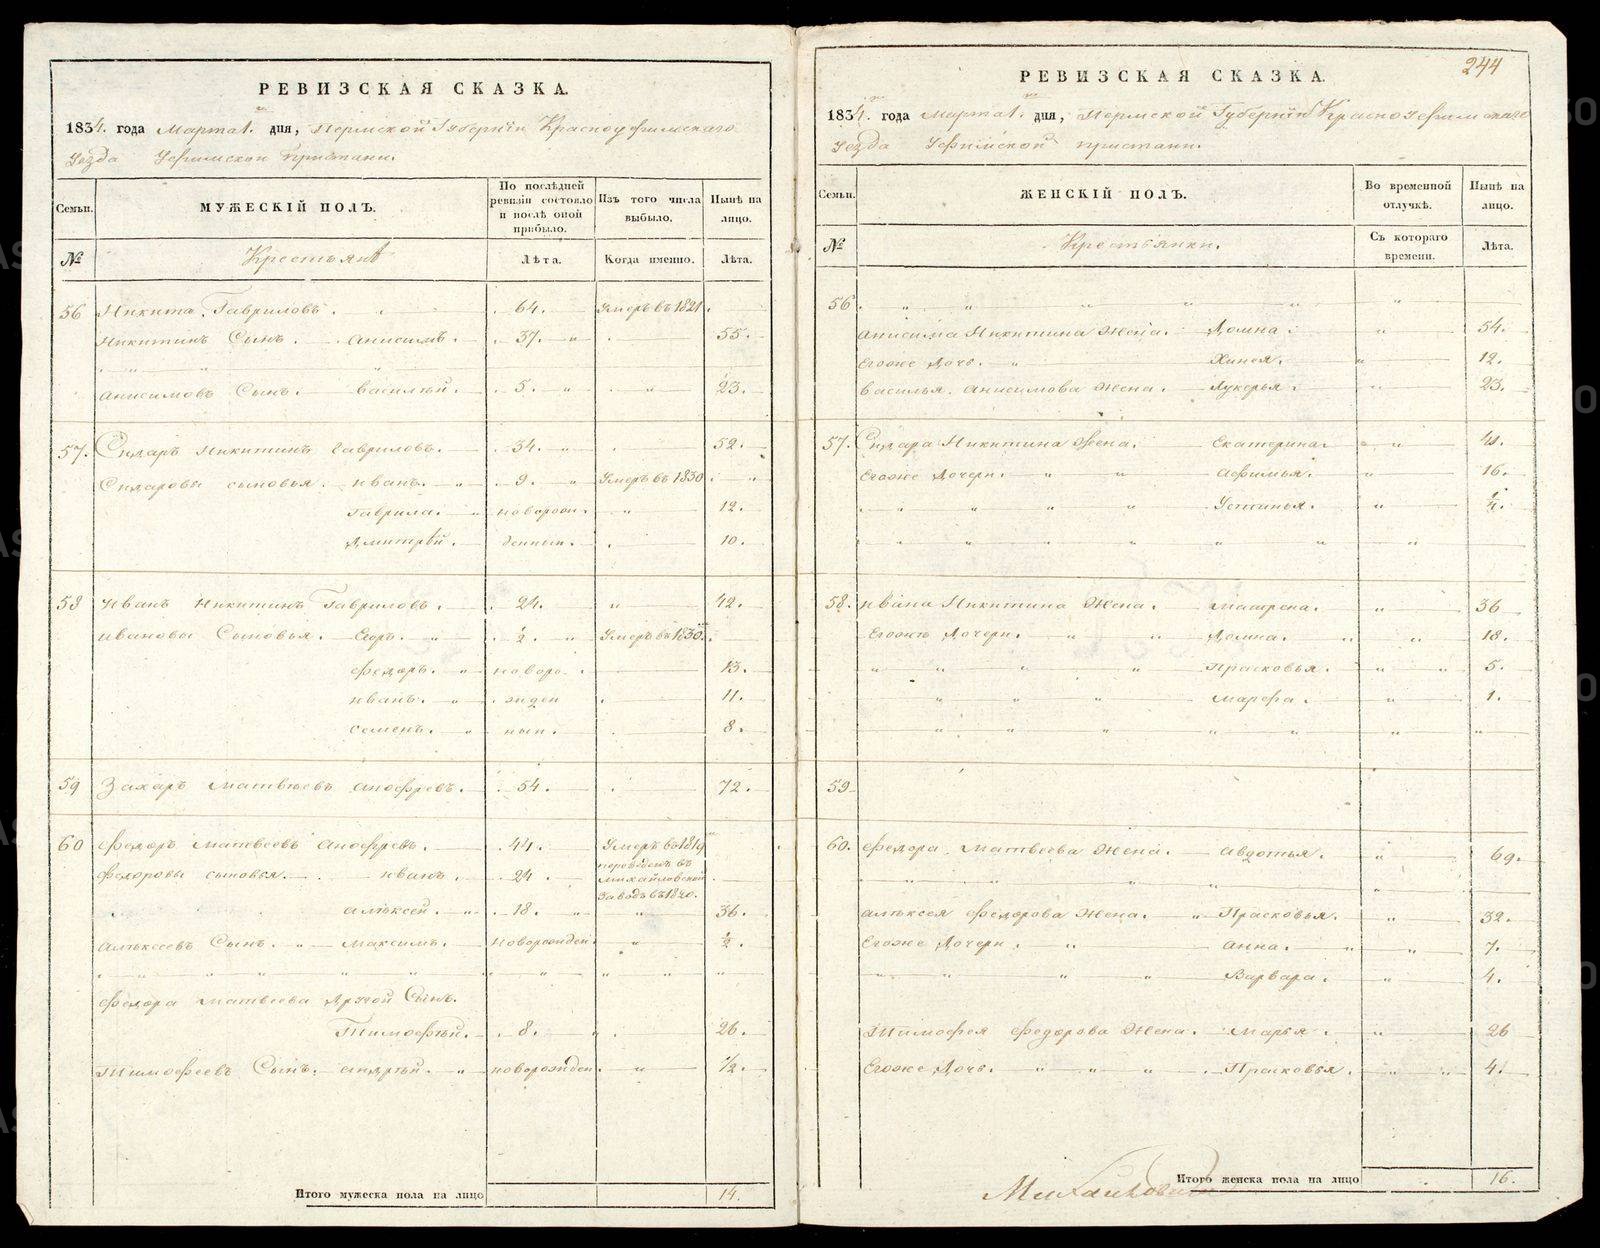 РЕВИЗСКАЯ СКАЗКА.
1834. года Марта 1. дня, Пермской Губернiи Красноуфимскаго
Уезда Уфимской пристани.
Семьи. МУЖЕСКIЙ ПОЛЪ. По послѣдней ревизiи состояло и послѣ оной прибыло. Изъ того числа выбыло. Нынѣ на лицо.
№ Крестьянѣ Лѣта. Когда именно. Лѣта.
56 Никита Гавриловъ. 64. Умеръ въ 1821.
Никитинъ Сынъ. Анисимъ. 37. 55.
Анисимовъ Сынъ. Василiй. 5. 23.
57. Сидаръ Никитинъ Гавриловъ. 34. 52.
Сидаровы сыновья. Иванъ. 9. Умеръ въ 1830
Гаврила. новорож. 12.
Дмитрей. денныи. 10.
58 Иванъ Никитинъ Гавриловъ. 24. 42.
Ивановы Сыновья. Егоръ. ½. Умеръ въ 1830.
Федоръ. новоро. 13.
Иванъ. жден 11.
Семенъ. ныи. 8.
59 Захаръ Матвѣевъ Анофревъ. 54. 72.
60 Федоръ Матвеевъ Анофревъ. 44. Умеръ въ 1819
Федоровы сыновья. Иванъ. 24. переведенъ въ Михайловской Заводъ въ 1820.
Алѣксей. 18. 36.
Алѣксеевъ Сынъ. Максимъ. новорожден. ½.
Федора Матвеева Другой Сынъ.
Тимофѣй. 8. 26.
Тимофеевъ Сынъ. Андрѣй. новорожден. ½.
Итого мужеска пола на лицо 14.
244
РЕВИЗСКАЯ СКАЗКА.
1834. года Марта 1. дня, Пермской Губернiи Красноуфимскаго
Уезда Уфимской пристани.
Семьи. ЖЕНСКIЙ ПОЛЪ. Во временной отлучкѣ. Нынѣ на лицо.
№ Крестьянки. Съ котораго времени. Лѣта.
56.
Анисима Никитина Жена. Домна. 54.
Егоже Дочь. 12.
Василья Анисимова Жена. Лукерья. 23.
57. Сидара Никитина Жена. Екатерина.
Егоже Дочери. Афимья. 16.
Устинья.
58. Ивана Никитина Жена. Матрена. 36
Егожъ Дочери. Домна. 18.
Прасковья. 5.
Марфа. 1.
59
60. Федора Матвеева Жена. Авдотья. 69.
Алѣксея Федорова Жена. Прасковья. 32.
Егоже Дочери. Анна. 7.
Варвара. 4.
Тимофея Федорова Жена. Марья. 26
Егоже Дочь. Прасковья. 4.
Итого женска пола на лицо 16.